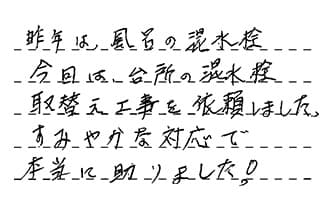 昨年は、風呂の混水栓
今回は、台所の混水栓
取替え工事を依頼しました。
すみやかな対応で
本当に助りました!